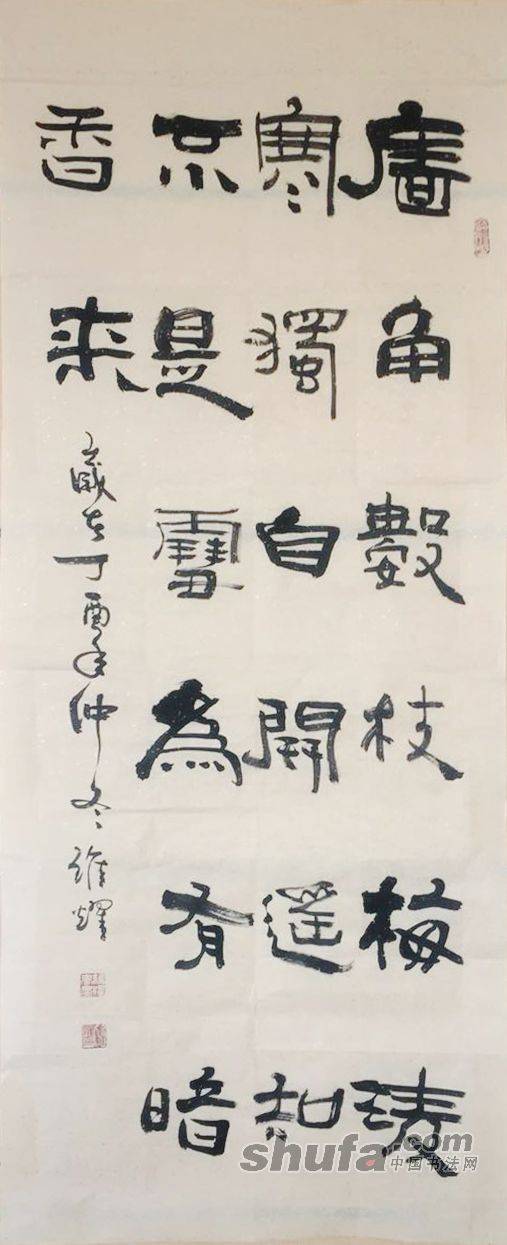 廧角數枝梅凌
寒獨自開遥知
不是雪為有暗
香来
歲在丁酉年仲冬維耀
shufa.com
中国书法网